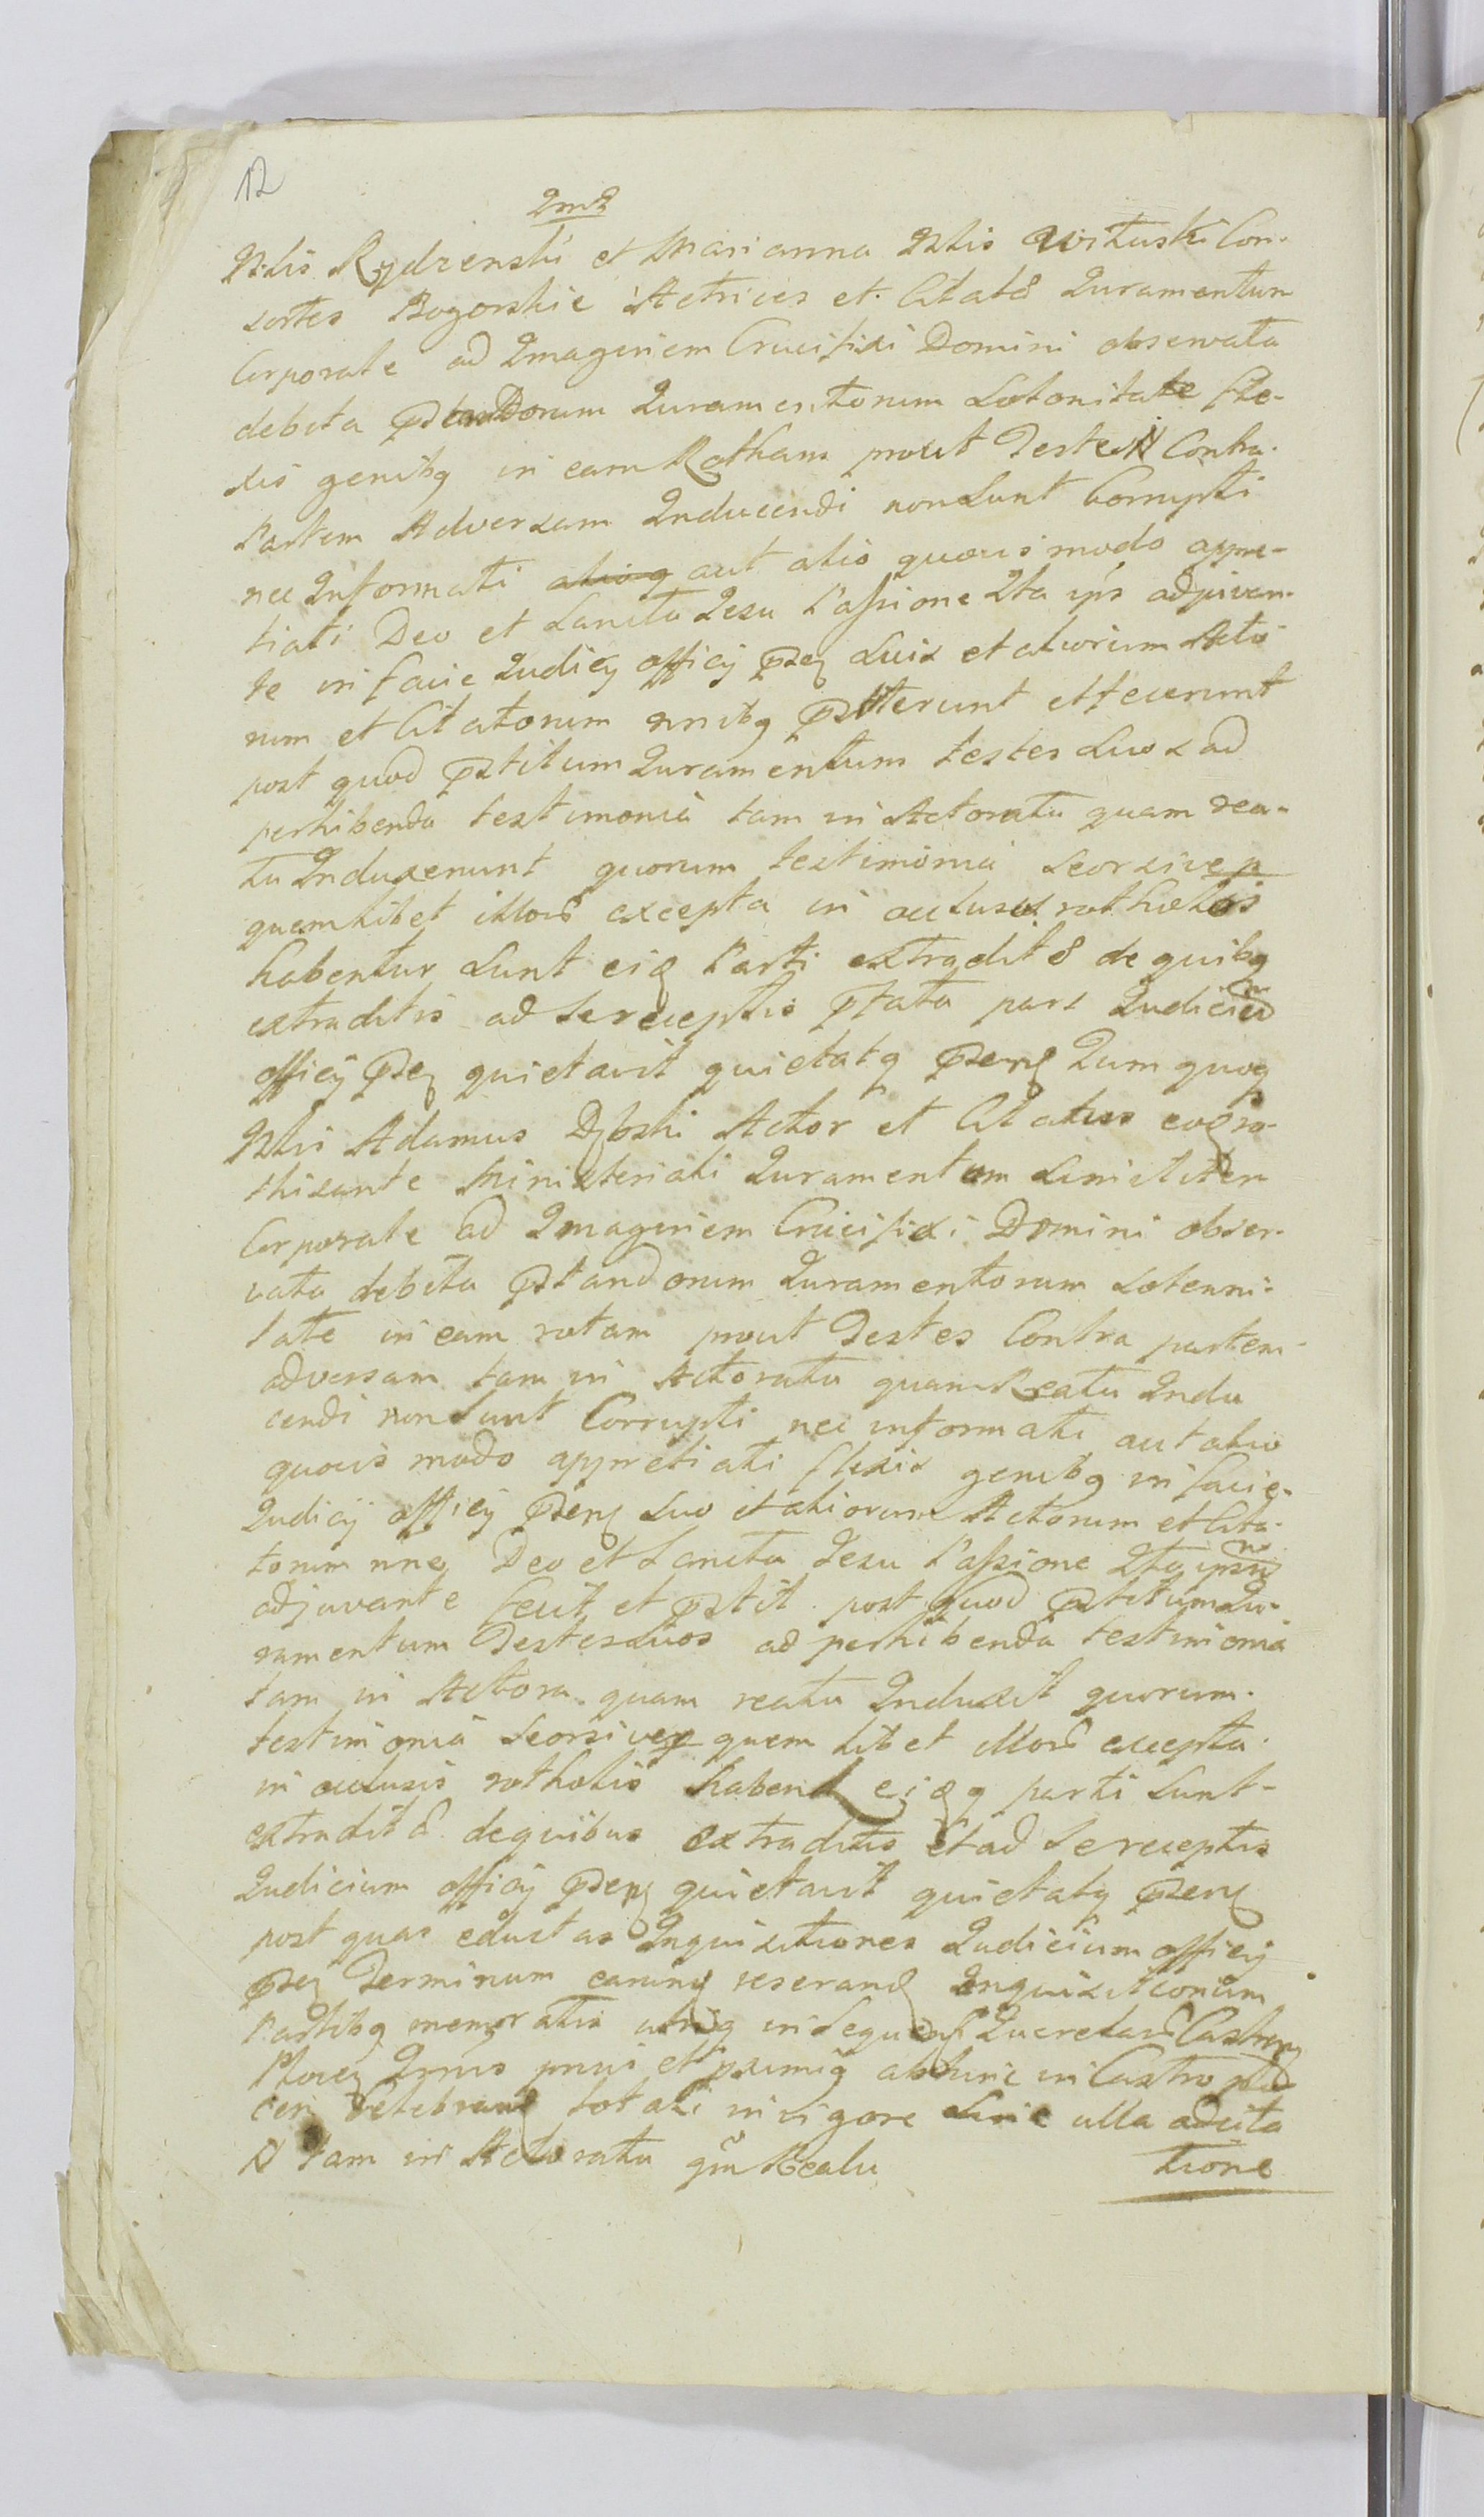 12
2mo
Nblis Rydzenski et Marianna Nblis Wituski Con-
sortes Bogorskie Actrices et Citatae Juramentum
Corporale ad Imaginem Crucifixi Domini observata
debita pstandorum Juramentorum Solonitate fle-
xis genibq in eam Rotham prout Testes N Contra
Partem Adversam Inducendi non sunt Corrupti
nec Informati aliоq aut alio quovis modo appre-
tiati Deo et Sancta Jesu Passione Ita ips adjuvan-
te in facie Judicij officij pseq suis et aliorum Acto
rum et Citatorum nnibq pstiterunt et fecerunt
post quod pstitum Juramentum testes suos ad
perhibenda testimonia tam in Actoratu quam rea-
tu Induxerunt quorum testimonia seorsive p
quemlibet illor excepta in oclusis rothulis
habentur sunt eiq Parti extradita de quibq
extraditis ad se receptis ptata pars Judicium
officij pseq quietavit quietatq pserq Tum quoq
Nblis Adamus Dębski Actor et Citatus eoq ro-
thisante Ministeriali Juramentum similiter
Corporale ad Imaginem Crucifixi Domini obser-
vata debita pstandorum Juramentorum solenni-
tate in eam rotam prout Testes Contra partem
adversam tam in Actoratu quam Reatu Indu
cendi non sunt Corrupti nec informati aut alio
quovis modo appretiati flexis genibq in facie
Judicij officij pserq suo et aliorum Actorum et Cita-
torum nne Deo et Sancta Jesu Passione Ita ipsum
adjuvante fecit et pstit post quod pstitum Ju-
ramentum Testes suos ad perhibenda testimonia
tam in Actora quam reatu Induxit quorum
testimonia seorsive p quem libet illor excepta
in oclusis rotholis habend eiqq parti sunt
extradita de quibus extraditis et ad se receptis
Judicium officij pserq quietavit quietatq pserq
post quas eductas Inquisitiones Judicium officij
pseq Terminum earunq reserand Inquisitionum
Partibq memoratis utrisq in sequen Querelar Castren
Plocen Trnis pmis et pximis abhinc in Castro
cen Celebrand totali in vigore sine ulla adcita
N tam in Actoratu qm Reatu
tione